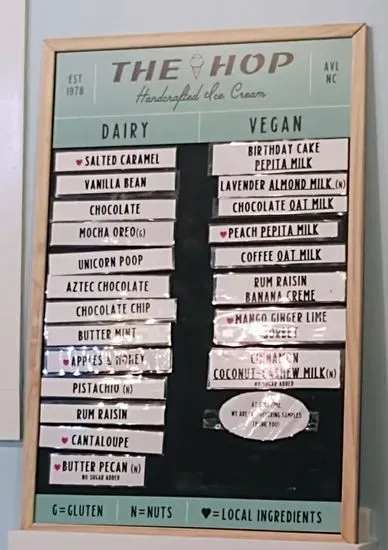 EST
1978
THE HOP
Handcrafted Ice Cream
AVL
NC
DAIRY
♥SALTED CARAMEL
VANILLA BEAN
CHOCOLATE
MOCHA OREO(G)
UNICORN POOP
AZTEC CHOCOLATE
CHOCOLATE CHIP
BUTTER MINT
♥APPLES & HONEY
PISTACHIO (N)
RUM RAISIN
♥CANTALOUPE
♥BUTTER PECAN (N)
NO SUGAR ADDED
VEGAN
BIRTHDAY CAKE
PEPITA MILK
LAVENDER ALMOND MILK (N)
CHOCOLATE OAT MILK
♥PEACH PEPITA MILK
COFFEE OAT MILK
RUM RAISIN
BANANA CREME
♥MANGO GINGER LIME
SORBET
CINNAMON
COCONUT-CASHEW MILK(N)
NO SUGAR ADDED
AT THIS TIME
WE ARE OFFERING SAMPLES
THANK YOU!
G=GLUTEN
N=NUTS
♥=LOCAL INGREDIENTS